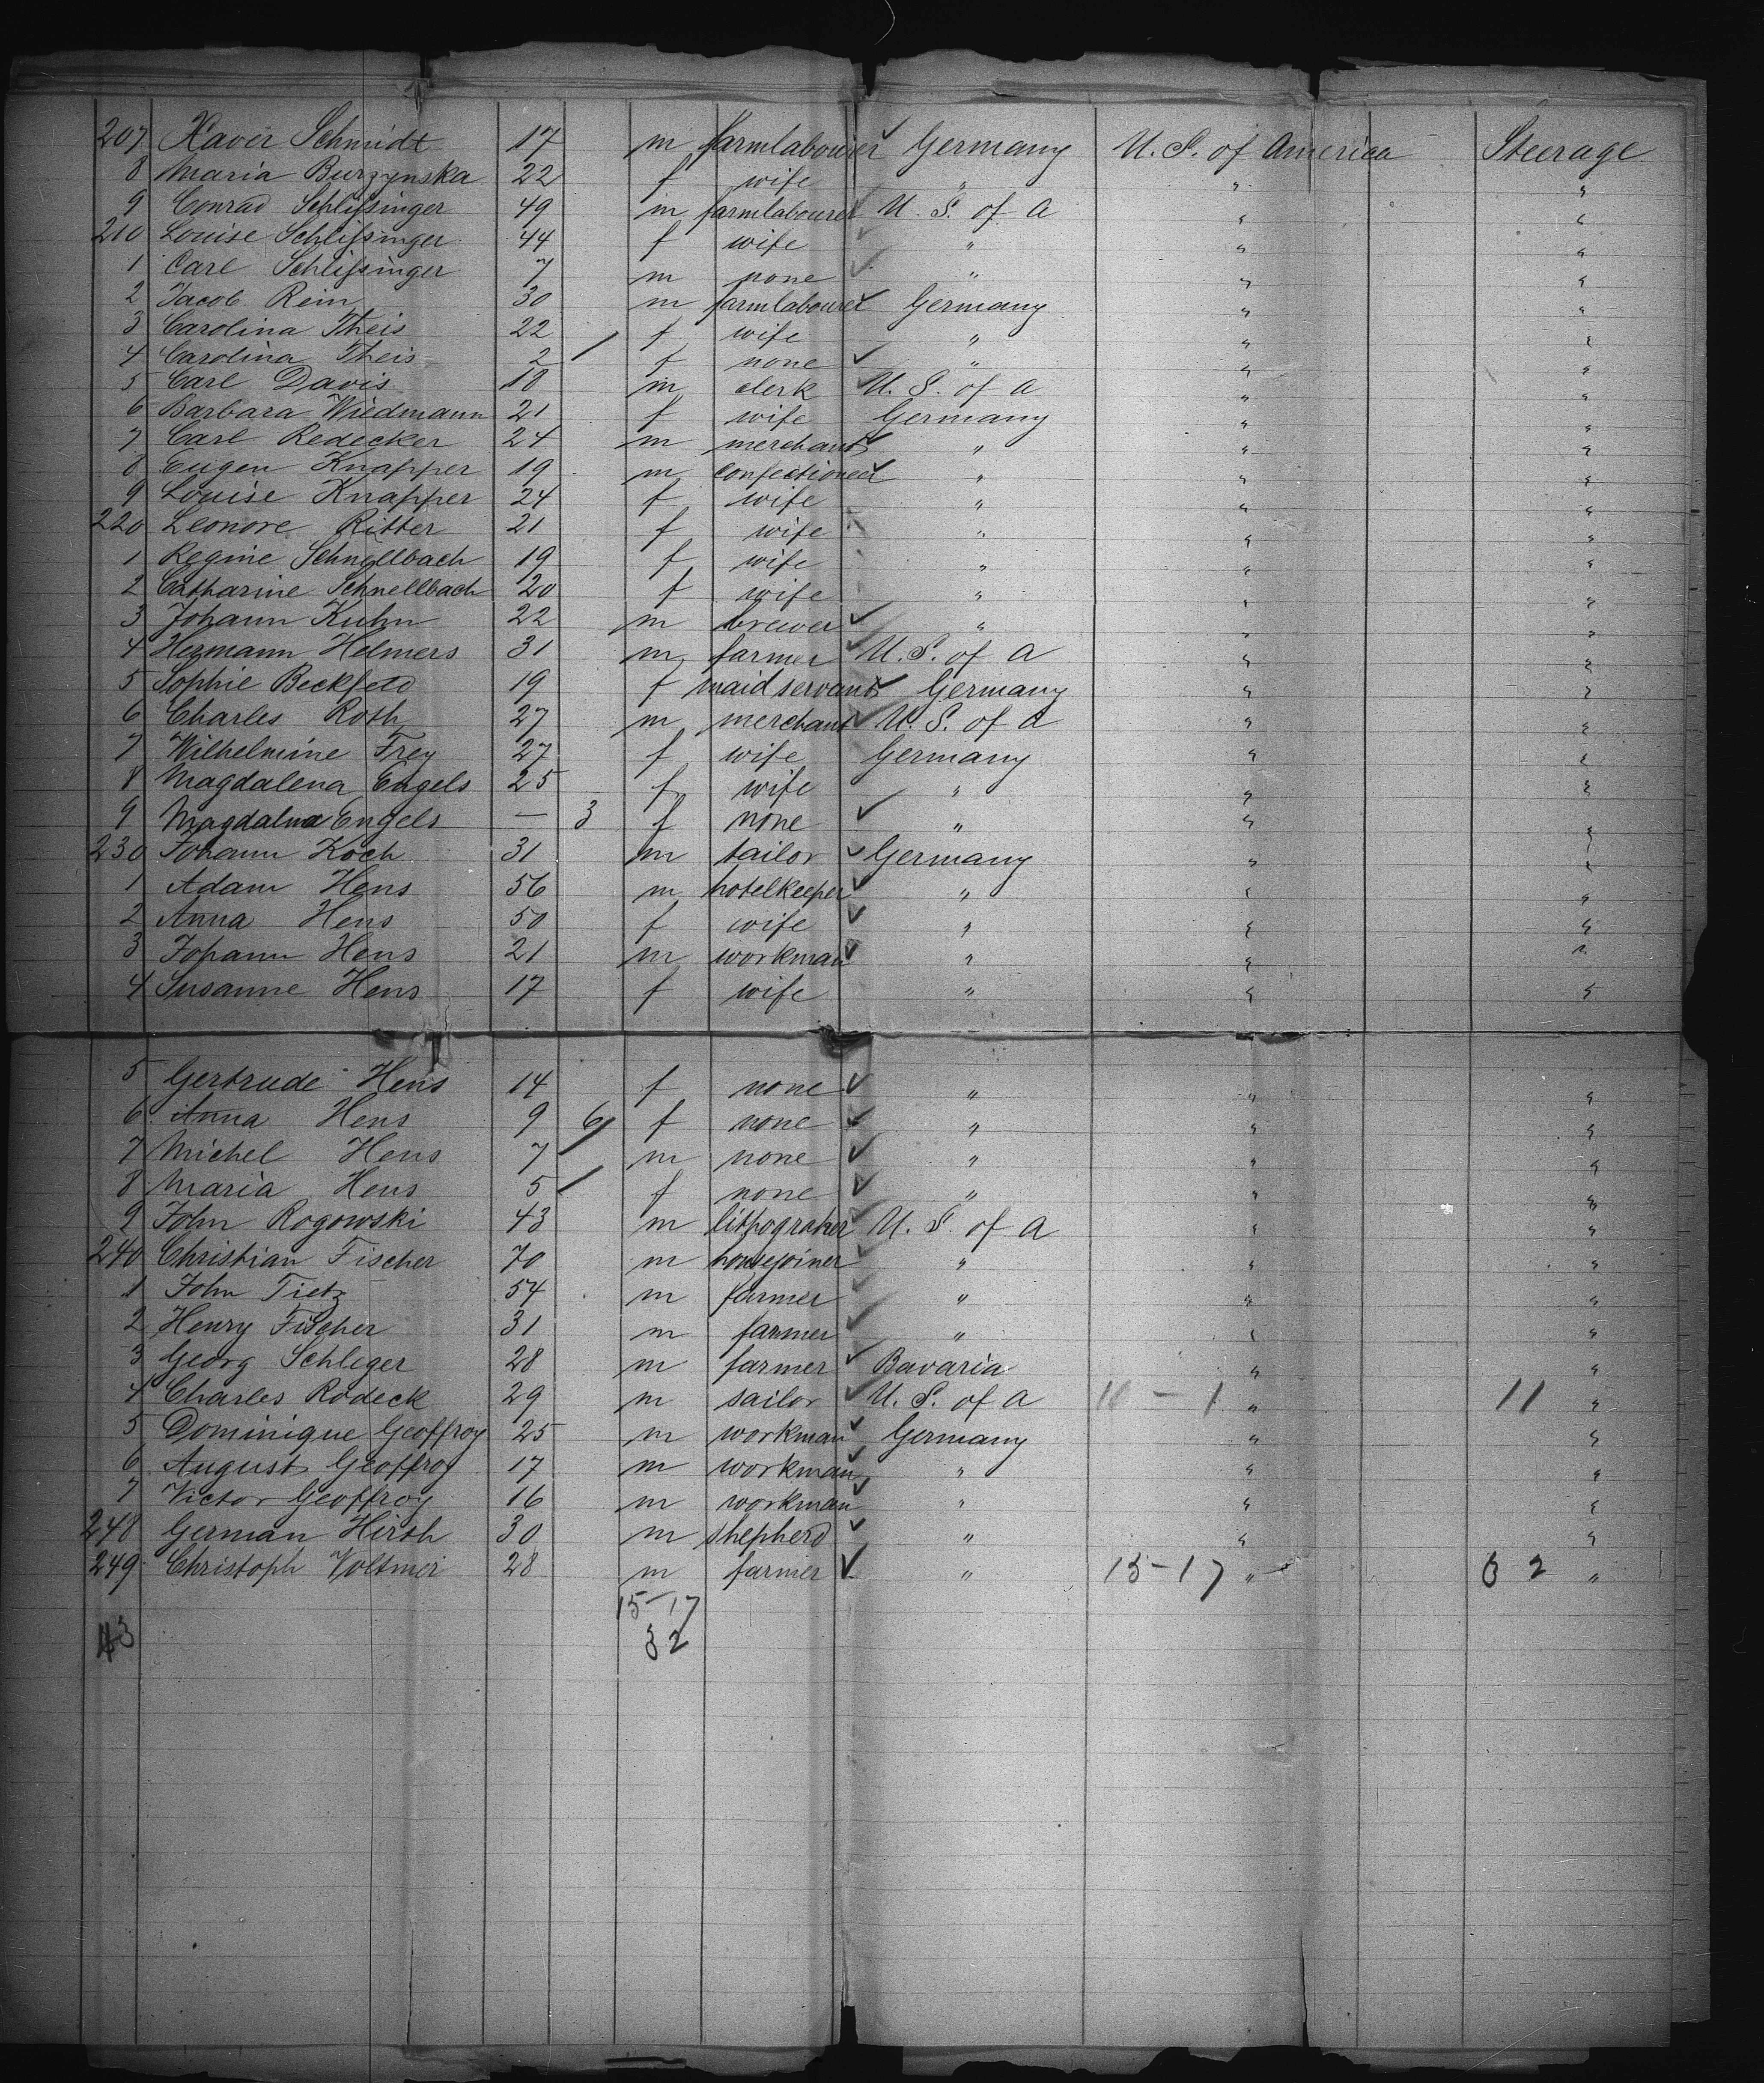 207 Xaver Schmidt 17 m farmlabourer ✓ Germany U. S. of America Steerage
8 Maria Burzynska 22 f wife " " "
9 Conrad Schlissinger 49 m farmlabourer U. S. of A " "
210 Louise Schlissinger 44 f wife ✓ " " "
1 Carl Schlissinger 7 m none ✓ " " "
2 Jacob Rein 30 m farmlabourer ✓ Germany " "
3 Carolina Theis 22 f wife " " "
4 Carolina Theis 2 / f none ✓ " " "
5 Carl Davis 18 m clerk ✓ U. S. of A " "
6 Barbara Wiedmann 21 f wife Germany " "
7 Carl Redecker 24 m merchant ✓ " " "
8 Eugen Knapper 19 m confectioner ✓ " " "
9 Louise Knapper 24 f wife " " "
220 Leonore Ritter 21 f wife " " "
1 Regine Schnellbach 19 f wife " " "
2 Catharine Schnellbach 20 f wife " " "
3 Johann Kuhn 22 m brewer ✓ " " "
4 Hermann Helmers 31 m farmer ✓ U. S. of A " "
5 Sophie Beckfeld 19 f maid servant ✓ Germany " "
6 Charles Roth 27 m merchant ✓ U. S. of A " "
7 Wilhelmine Frey 27 f wife Germany " "
8 Magdalena Engels 25 f wife " " "
9 Magdalena Engels — 3 f none ✓ " " "
230 Johann Koch 31 m tailor ✓ Germany " "
1 Adam Hens 56 m hotelkeeper ✓ " " "
2 Anna Hens 50 f wife ✓ " " "
3 Johann Hens 21 m workman ✓ " " "
4 Susanne Hens 17 f wife " " "
5 Gertrude Hens 14 f none ✓ " " "
6 Anna Hens 9 6/ f none ✓ " " "
7 Michel Hens 7 / m none ✓ " " "
8 Maria Hens 5 / f none ✓ " " "
9 John Rogowski 43 m lithographer ✓ U. S. of A " "
240 Christian Fischer 70 m housejoiner ✓ " " "
1 John Tietz 54 m farmer ✓ " " "
2 Henry Fischer 31 m farmer ✓ " " "
3 Georg Schleger 28 m farmer ✓ Bavaria " "
4 Charles Rodeck 29 m sailor ✓ U. S. of A 10 - 1 " 11 "
5 Dominique Geoffroy 25 m workman ✓ Germany " "
6 August Geoffroy 17 m workman ✓ " " "
7 Victor Geoffroy 16 m workman ✓ " " "
248 German Hirth 30 m shepherd ✓ " " "
249 Christoph Voltmer 28 m farmer ✓ " 15-17 " 32 "
15-17
43 32